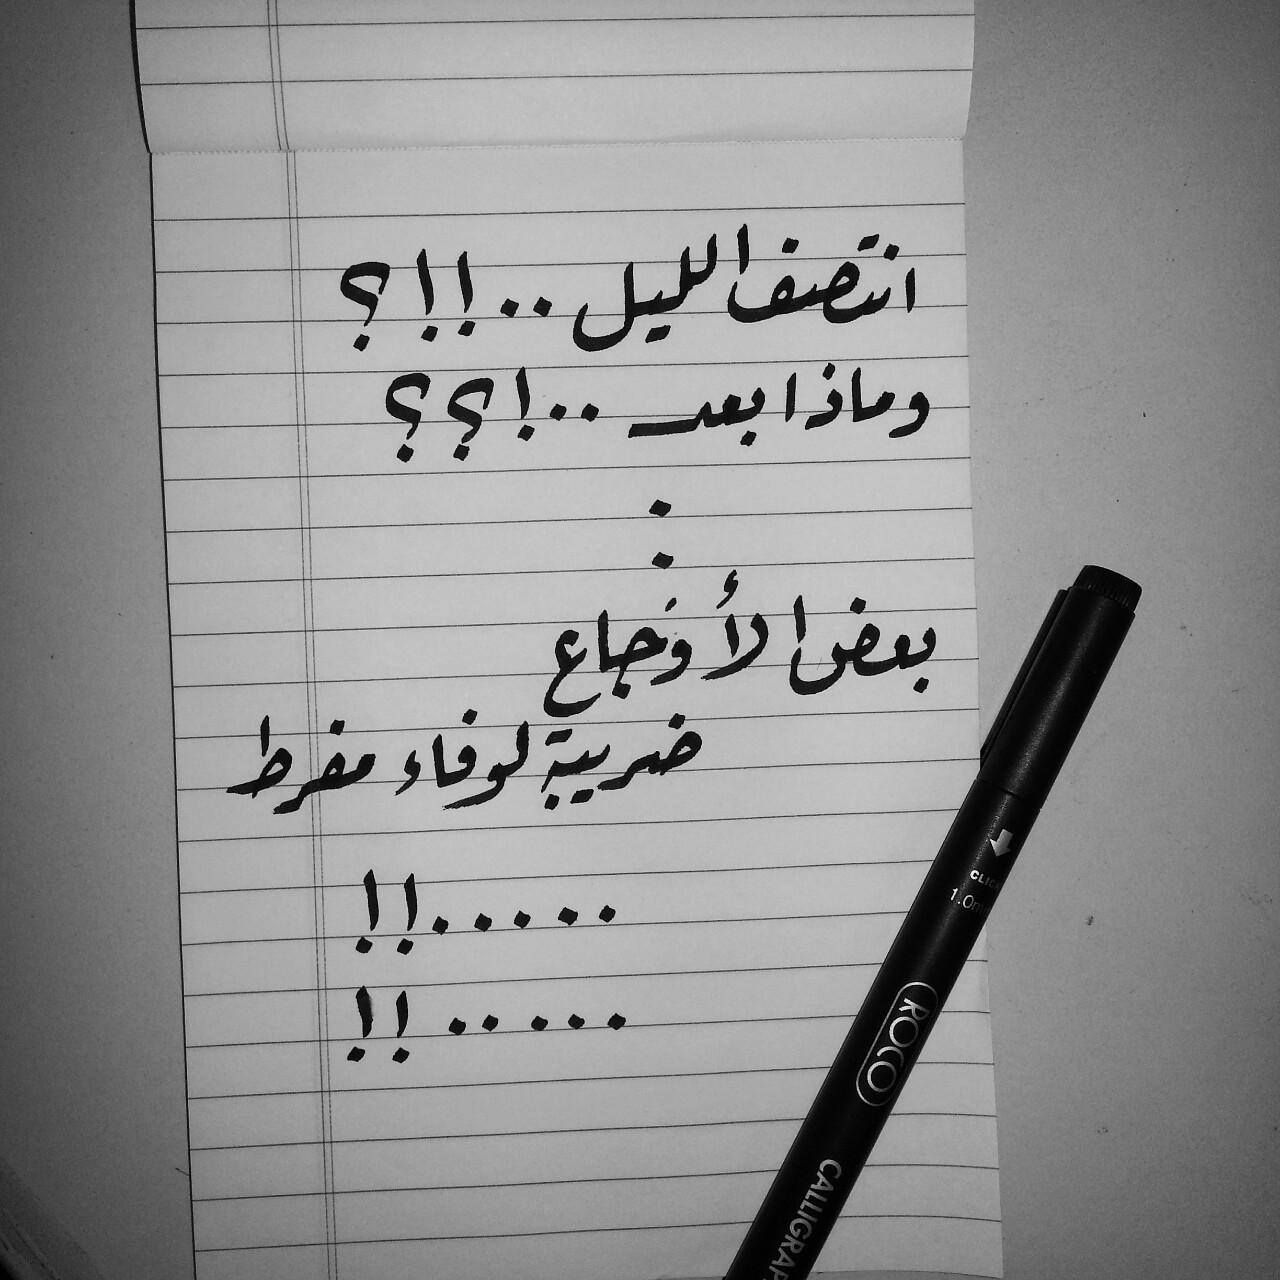 انتصف الليل ..!!؟
وماذا بعد ..!؟؟
.
.
بعض الأوجاع
ضريبة لوفاء مفرط
.....!!
.....!!
CLICK
1.0m
ROCO
CALLIGRAP